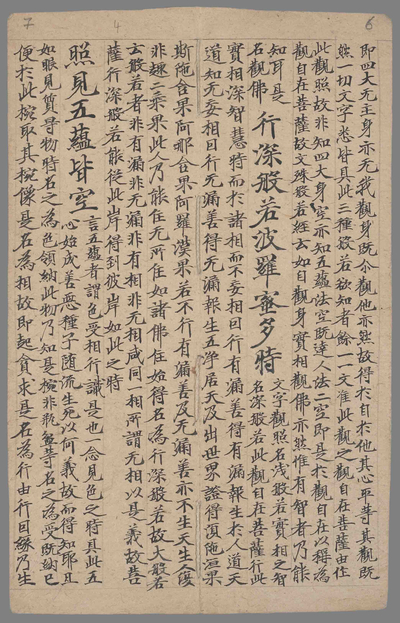 即四大无主身亦无我觀身既尒觀他亦然故得於自於他其心平等其觀既
然一切文字悉皆具此三種般若欲知者餘一一文准此觀之觀自在菩薩由住
此觀照故非知四大身空亦知五蘊法空既達人法二空即是於觀自在以稱為
觀自在菩薩故文殊般若經云如自觀身實相觀佛亦然惟有智者乃能
知耳是名觀佛 行深般若波羅蜜多時 文字觀照名浅般若實相之智名深般若此觀自在菩薩行此
實相深智慧時而於諸相而不妄相回行有漏善得有漏報生於人道天
道知无妄相回行无漏善得无漏報生五净居天及出世果證得須陁洹果
斯陁含果阿那含果阿羅漢果若不行有漏善及无漏善亦不生天生人復
非趣二乘果此人乃能住无所住如諸佛住始得名為行深般若故大般若
云般若者非有漏非无漏非有相非无相咸同一相所謂无相以是義故菩
薩行深般若能從此岸得到彼岸如此之時
照見五蘊皆空 言五蘊者謂色受相行識是也一念見色之時具此五心始成善惡種子随流生死以何義故而得知耶且
如眼見質导物時名之為色領納此物乃知是椀非瓶盤等名之為受既納已
便於此椀取其椀像是名為相故即起貪求是名為行由行回緣乃生
7
4
6